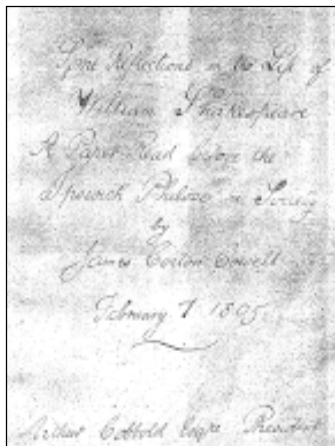 Some Reflections on the Life of
William Shakespeare
A Paper Read before the
Ipswich Philoso in Society
by
James Corton Cowell
February 7 1805
Arthur Cobbold Esqre President